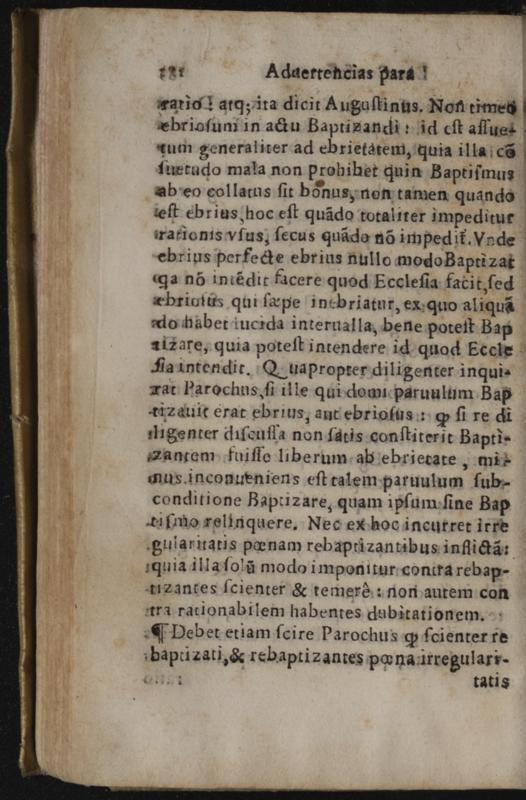 Aduertencias para
ratio! atq; ita dicit Augustinus. Non timeo
ebriosum in actu Baptizandi: id est assue-
tum generaliter ad ebrietatem, quia illa cõ
suetudo mala non prohibet quin Baptismus
ab eo collatus sit bonus, non tamen quando
est ebrius, hoc est quãdo totaliter impeditur
rationis vsus, secus quãdo nõ impedit̃. Vnde
ebrius perfecte ebrius nullo modo Baptizat
qa nõ intẽdit facere quod Ecclesia facit, sed
ebriosus qui sæpe inebriatur, ex quo aliquã
do habet lucida interualla, bene potest Bap
tizare, quia potest intendere id quod Eccle
sia intendit. Quapropter diligenter inqui-
rat Parochus, si ille qui domi paruulum Bap
tizauit erat ebrius, aut ebriosus: ꝙ si re di
ligenter discussa non satis constiterit Bapti-
zantem fuisse liberum ab ebrietate, mi-
nus inconueniens est talem paruulum sub
conditione Baptizare, quam ipsum sine Bap
tismo relinquere. Nec ex hoc incurret irre
gularitatis pœnam rebaptizantibus inflictã:
quia illa solũ modo imponitur contra rebap-
tizantes scienter & temerê: non autem con
tra rationabilem habentes dubitationem.
¶ Debet etiam scire Parochus ꝙ scienter re
baptizati, & rebaptizantes pœna irregulari-
tatis